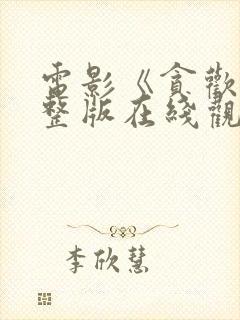 電影《貪歡
整版在綫觀
李欣慧